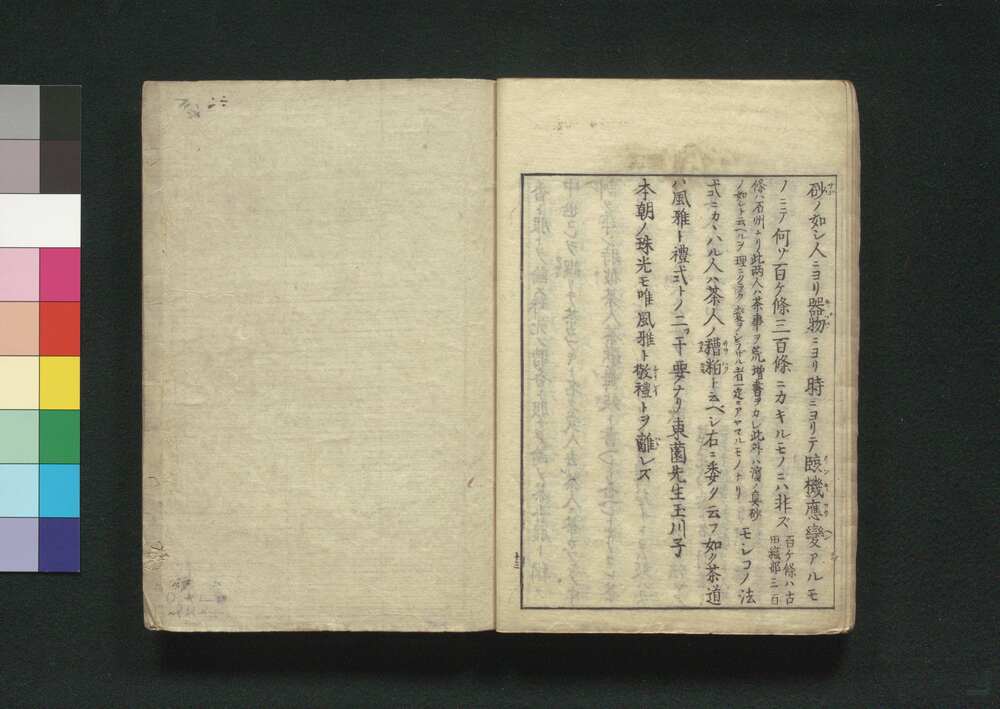 砂ノ如シ人ニヨリ器物ニヨリ時ニヨリテ臨機應變アルモ
ノニテ何ソ百ケ條三百條ニカキルモノニハ非ズ 百ケ條ハ古田織部三百
條ハ石州ナリ此両人ハ茶事ヲ荒増書ヲカレ此外ハ濱ノ真砂
ノ如シト云ヘルヲ理ニクラク変ヲシラザル者一途ニアヤマルモノナリ モシコノ法
式ニカヽハル人ハ茶人ノ糟粕ト云ベシ右ニ委ク云フ如ク茶道
ハ風雅ト禮式トノ二ツ干要ナリ東園先生玉川子
本朝ノ珠光モ唯風雅ト敬禮トヲ離レズ